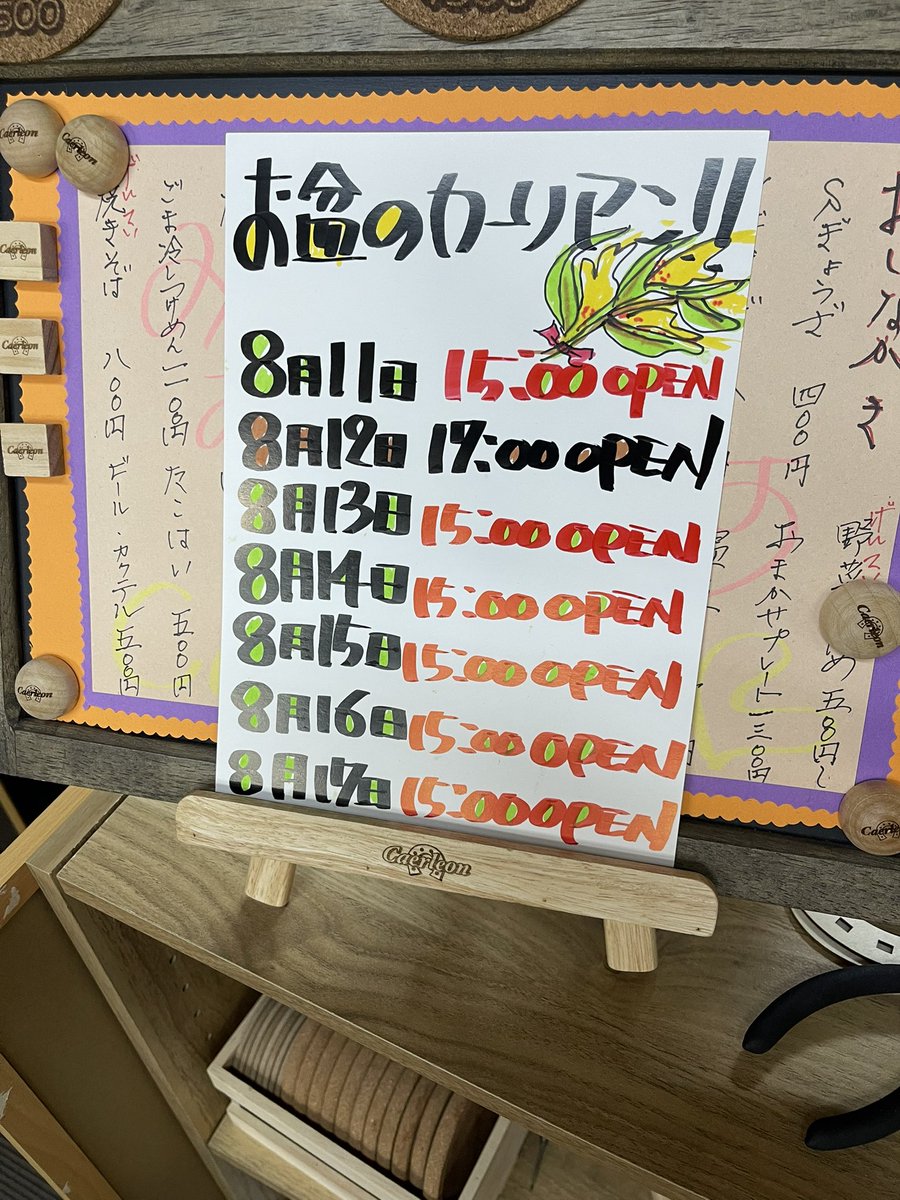 500
お盆のカーリアン!!
8月11日 15:00 OPEN
8月12日 17:00 OPEN
8月13日 15:00 OPEN
8月14日 15:00 OPEN
8月15日 15:00 OPEN
8月16日 15:00 OPEN
8月17日 15:00 OPEN
Caerleon
おしながき
ぎょうざ 四〇〇円
野菜
め 五〇円〜
おまかせプレート 一三〇〇円
ごま冷しつけめん 一一〇〇円
たこはい 五〇〇円
焼きそば 八〇〇円
ビール・カクテル 五〇〇円
Caerleon
Caerleon
Caerleon
Caerleon
Caerleon
Caerleon
Caerleon
Caerleon